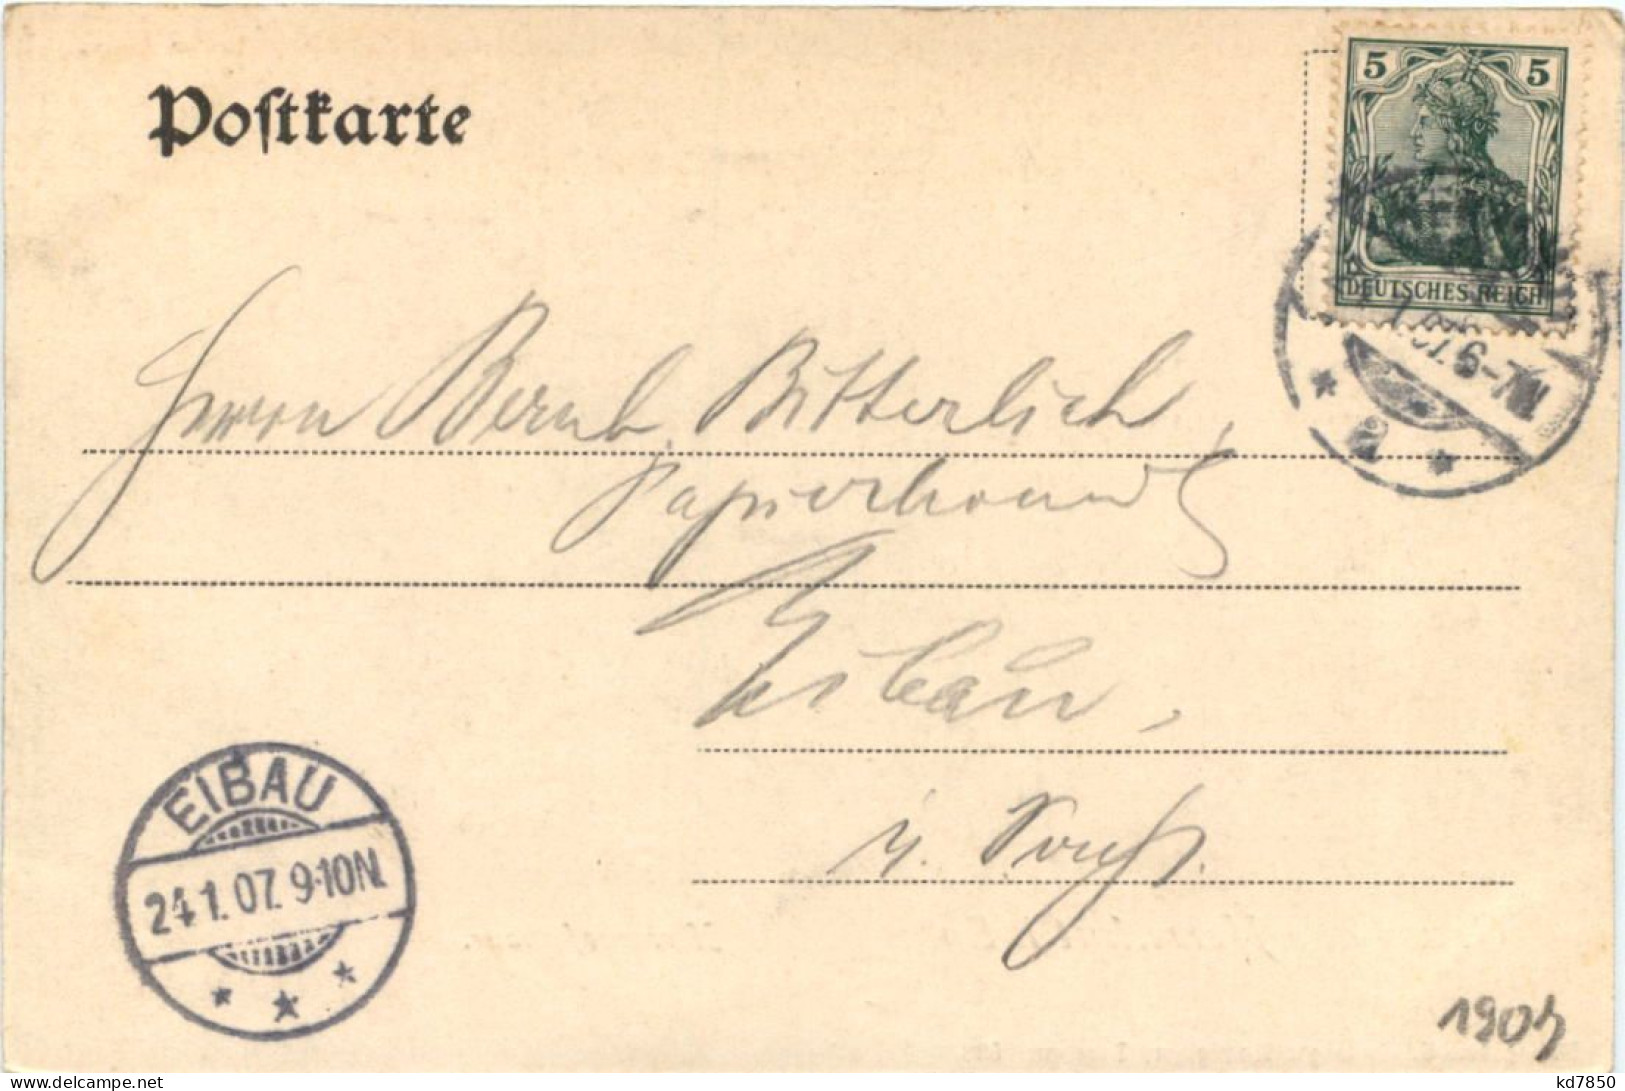 Poſtkarte
5 5
DEUTSCHES REICH
6-7N.
Herrn Bernh. Bitterlich,
Papierhandl
Eibau,
i. Sachs.
EIBAU
24.1.07. 9-10N.
1907
www.delcampe.net
kd7850